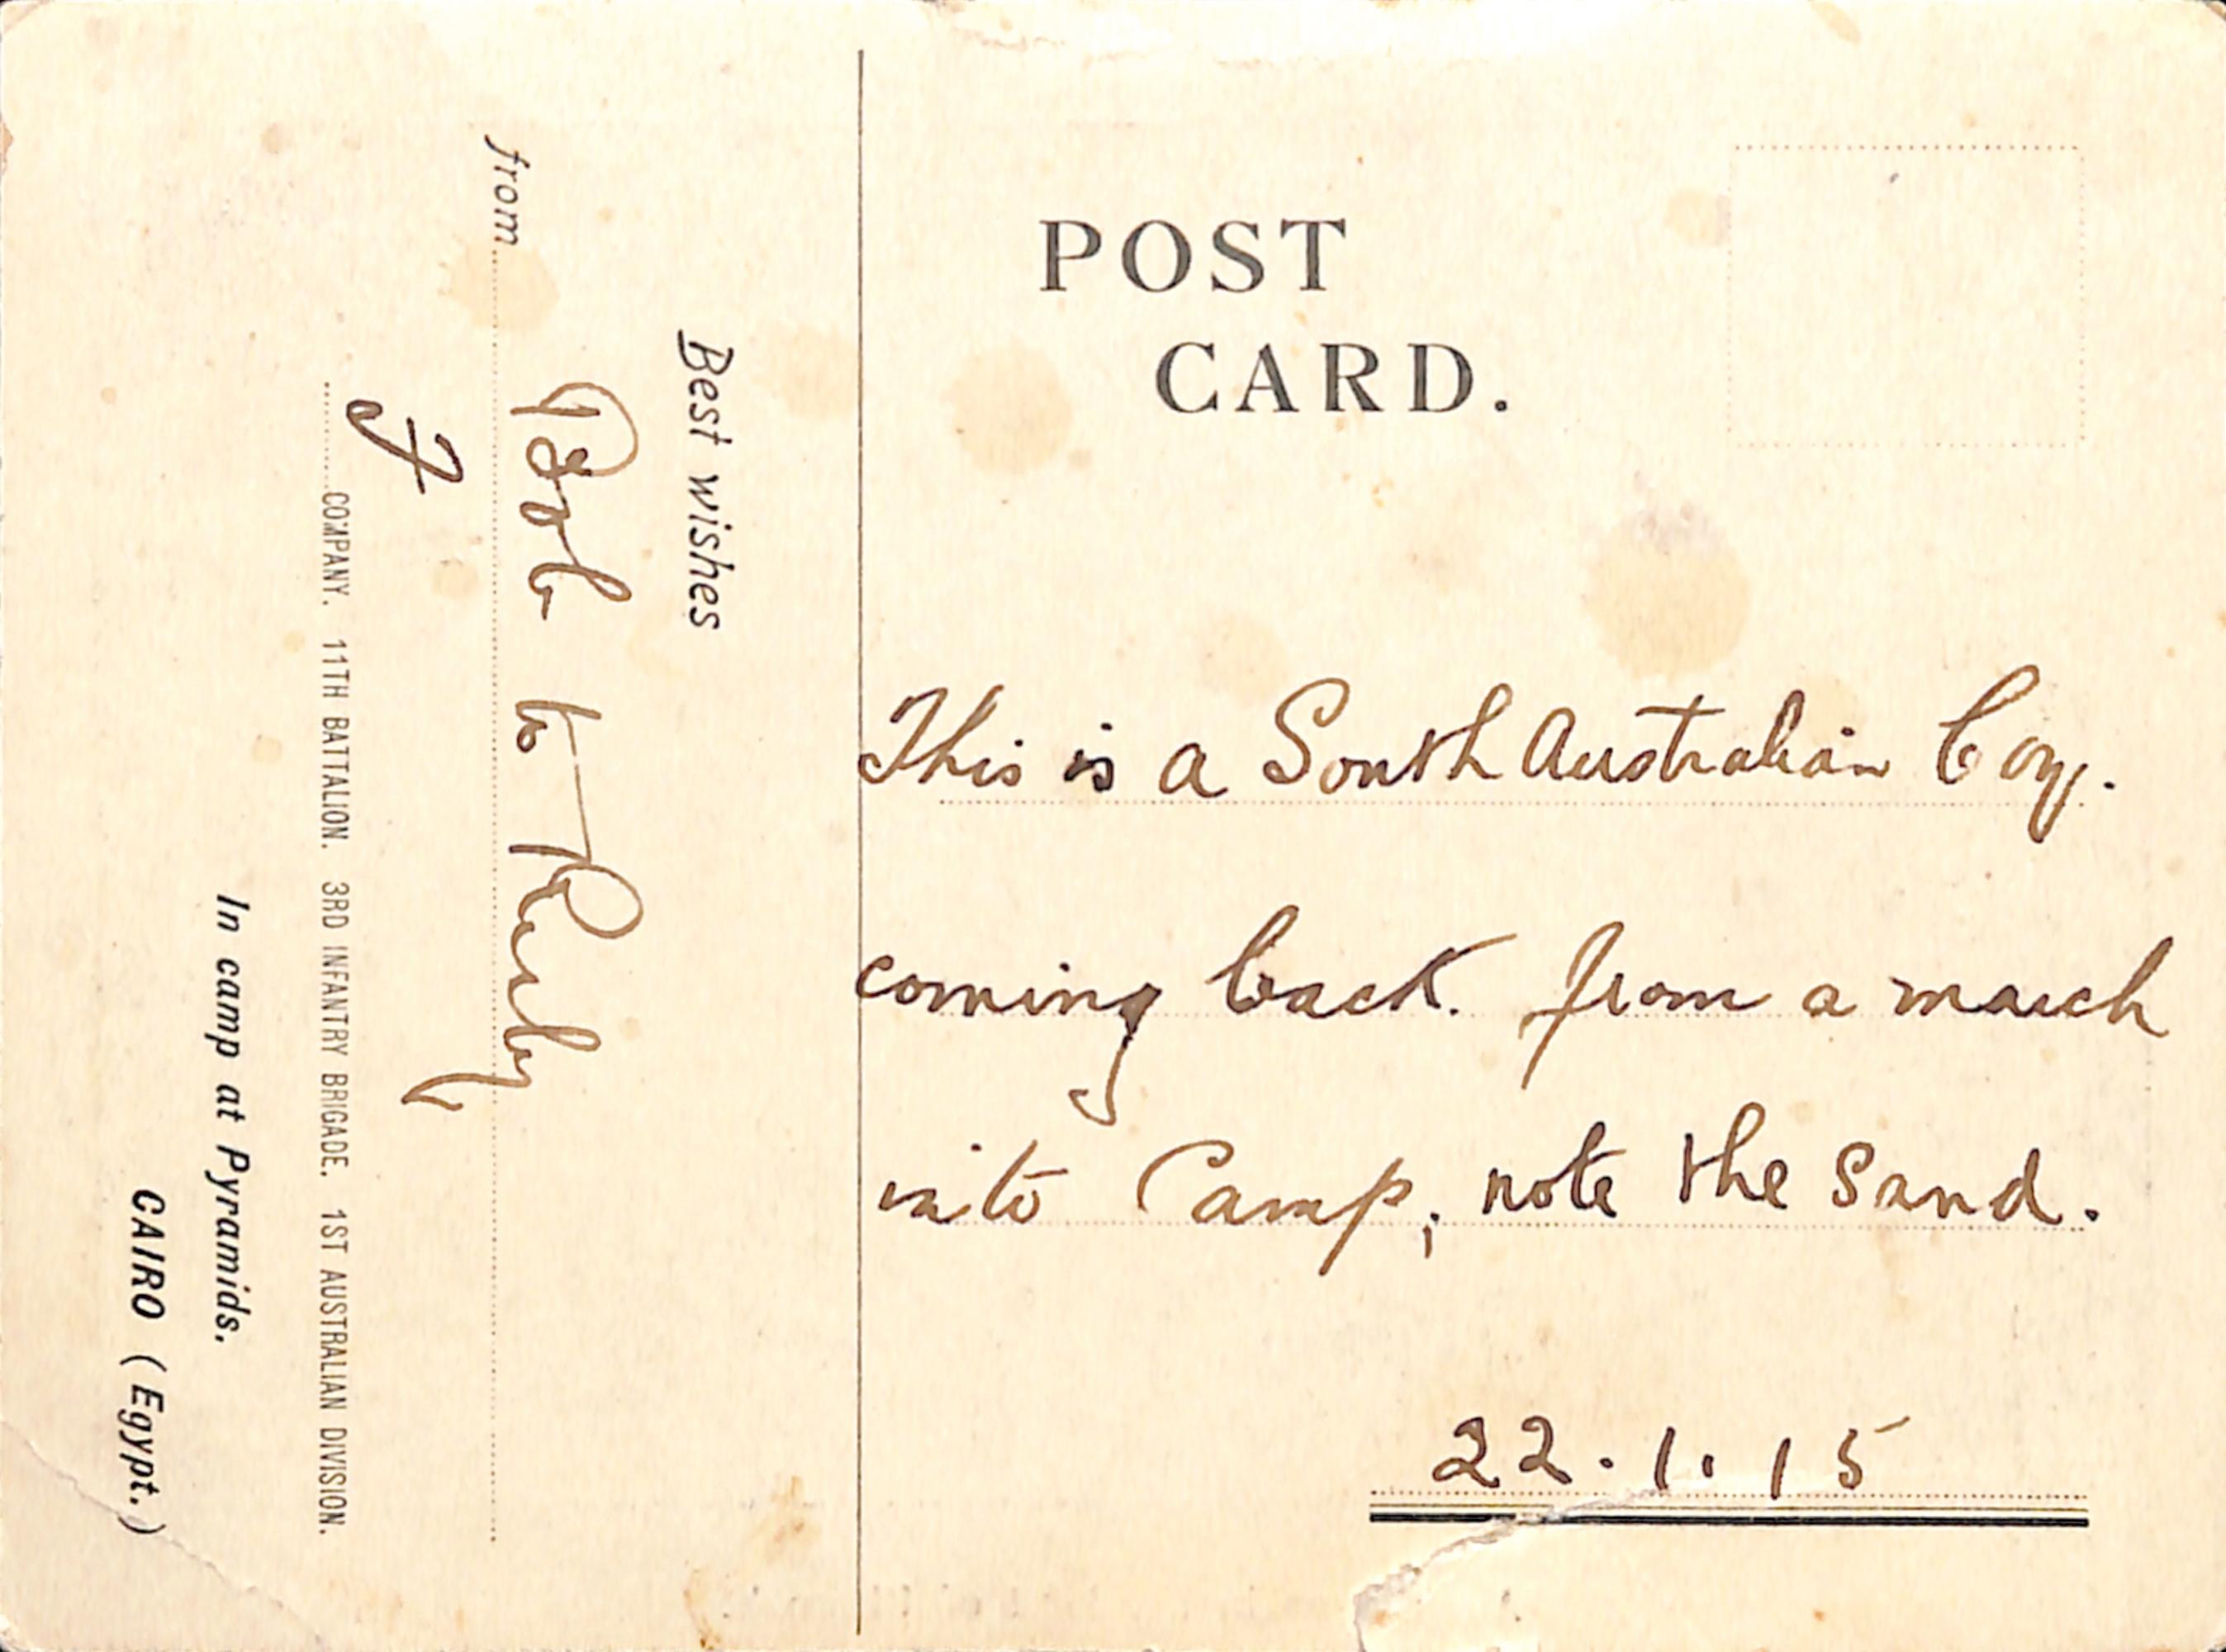 Best wishes
from Bob to Ruby
F COMPANY. 11TH BATTALION. 3RD INFANTRY BRIGADE. 1ST AUSTRALIAN DIVISION.
In camp at Pyramids.
CAIRO (Egypt.)
POST
CARD.
This is a South Australian Coy.
coming back. from a march
into Camp, note the sand.
22.1.15